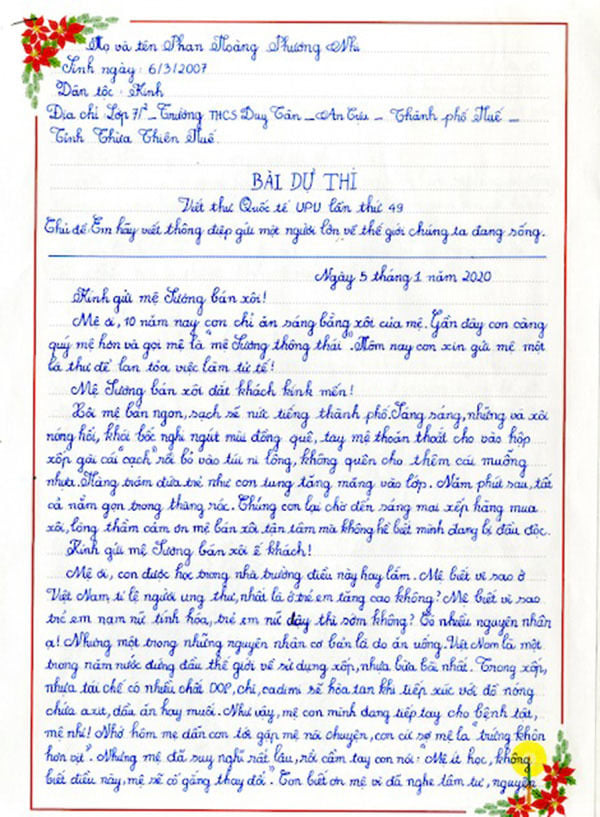 Họ và tên Phan Hoàng Phương Nhi
Sinh ngày: 6/3/2007
Dân tộc: Kinh
Địa chỉ: Lớp 7/1 – Trường THCS Duy Tân – An Cựu – Thành phố Huế –
Tỉnh Thừa Thiên Huế.
BÀI DỰ THI
Viết thư Quốc tế UPU lần thứ 49
Chủ đề: Em hãy viết thông điệp gửi một người lớn về thế giới chúng ta đang sống.
Ngày 5 tháng 1 năm 2020
Kính gửi mệ Sương bán xôi!
Mệ ơi, 10 năm nay con chỉ ăn sáng bằng xôi của mệ. Gần đây con càng
quý mệ hơn và gọi mệ là "mệ Sương thông thái". Hôm nay con xin gửi mệ một
lá thư để lan tỏa việc làm tử tế!
Mệ Sương bán xôi đắt khách kính mến!
Xôi mệ bán ngon, sạch sẽ nức tiếng thành phố. Sáng sáng, những vá xôi
nóng hổi, khói bốc nghi ngút mùi đồng quê, tay mệ thoăn thoắt cho vào hộp
xốp gài cái "cạch" rồi bỏ vào túi ni lông, không quên cho thêm cái muỗng
nhựa. Hàng trăm đứa trẻ như con tung tăng mang vào lớp. Năm phút sau, tất
cả nằm gọn trong thùng rác. Chúng con lại chờ đến sáng mai xếp hàng mua
xôi, lòng thầm cảm ơn mệ bán xôi tận tâm mà không hề biết mình đang bị đầu độc.
Kính gửi mệ Sương bán xôi ế khách!
Mệ ơi, con được học trong nhà trường điều này hay lắm. Mệ biết vì sao ở
Việt Nam, tỉ lệ người ung thư, nhất là ở trẻ em tăng cao không? Mệ biết vì sao
trẻ em nam nữ tính hóa, trẻ em nữ dậy thì sớm không? Có nhiều nguyên nhân
ạ! Nhưng một trong những nguyên nhân cơ bản là do ăn uống. Việt Nam là một
trong năm nước đứng đầu thế giới về sử dụng xốp, nhựa bừa bãi nhất. Trong xốp,
nhựa tái chế có nhiều chất DOP, chì, cadimi sẽ hòa tan khi tiếp xúc với đồ nóng
chứa axit, dầu ăn hay muối. Như vậy, mệ con mình đang tiếp tay cho bệnh tật,
mệ nhỉ! Nhớ hôm mẹ dẫn con tới gặp mệ nói chuyện, con cứ sợ mệ la "trứng khôn
hơn vịt". Nhưng mệ đã suy nghĩ rất lâu, rồi cầm tay con nói: "Mệ ít học, không
biết điều này, mệ sẽ cố gắng thay đổi". Con biết ơn mệ vì đã nghe tâm tư, nguyện